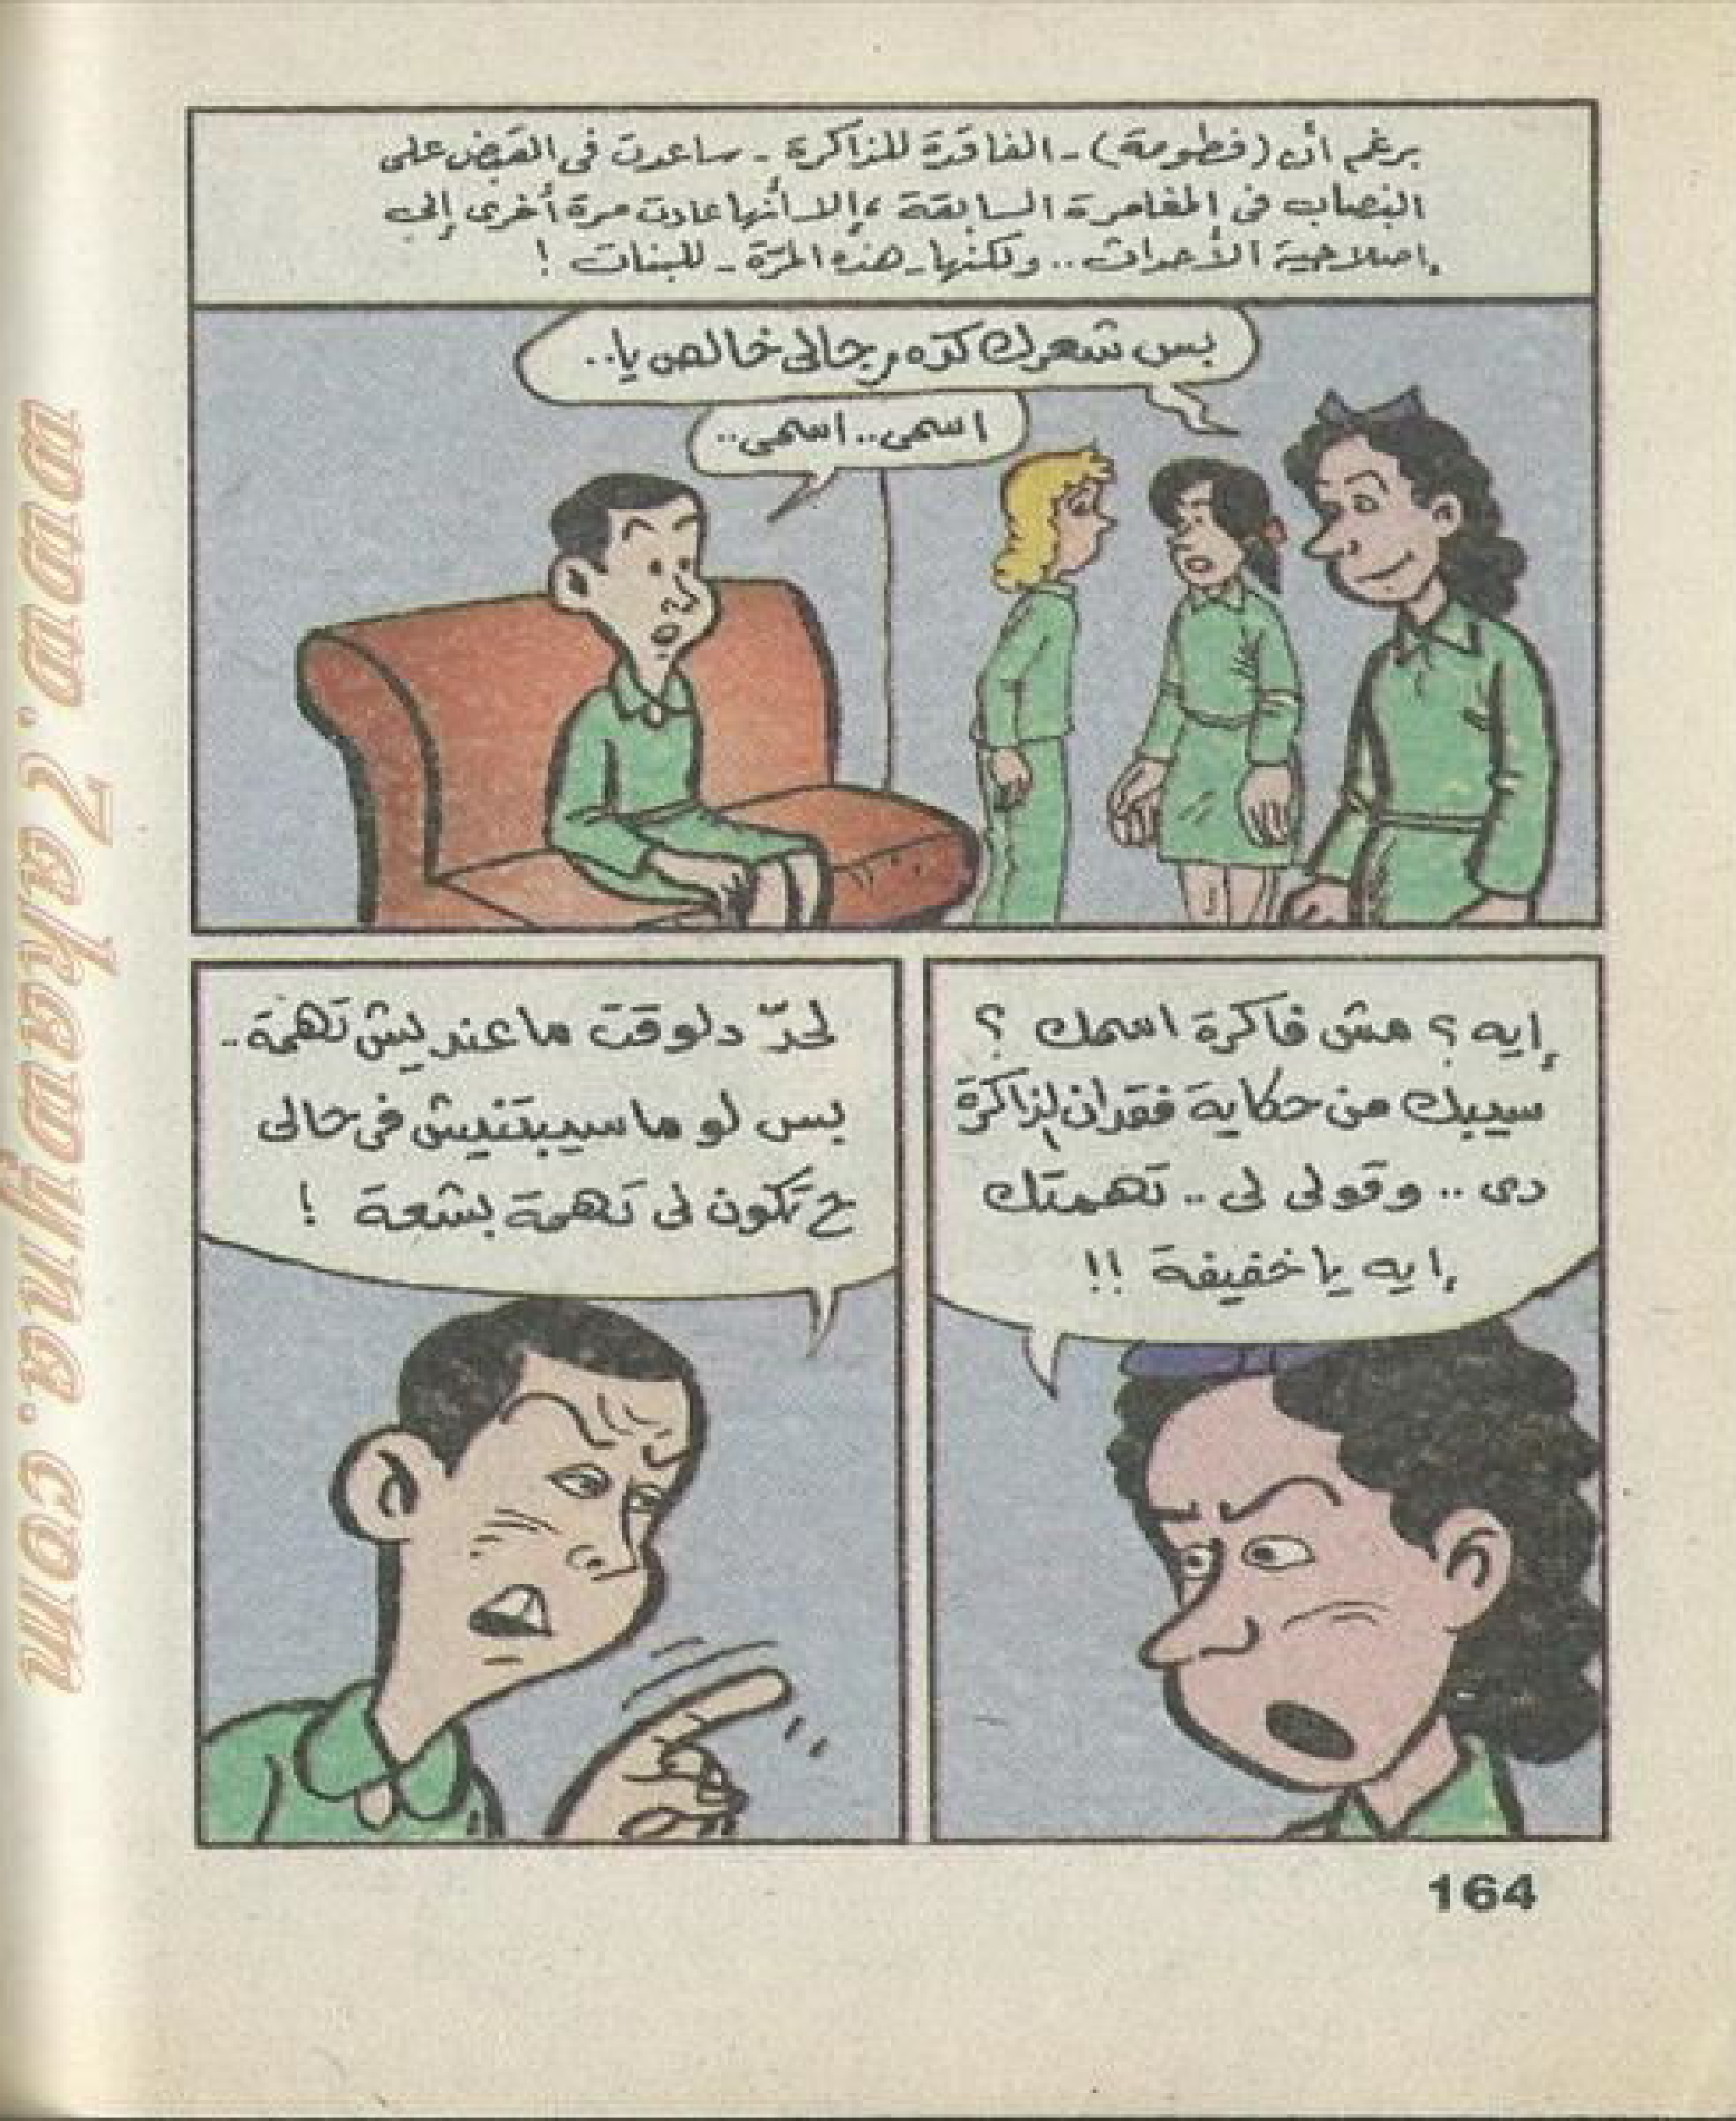 برغم أن (فطومة) - الفاقدة للذاكرة - ساعدت فى القبض على
النصاب فى المغامرة السابقة ، إلا أنها عادت مرة أخرى إلى
إصلاحية الأحداث .. ولكنها - هذه المرّة - للبنات !
بس شعرك كده رجالى خالص يا ..
اسمى .. اسمى ..
إيه ؟ مش فاكرة اسمك ؟
سيبك من حكاية فقدان الذاكرة
دى .. وقولى لى .. تهمتك
إيه يا خفيفة !!
لحدّ دلوقت ما عنديش تهمة -
بس لو ما سيبتنيش فى حالى
ح تكون لى تهمة بشعة !
164
www.2akadymna.com